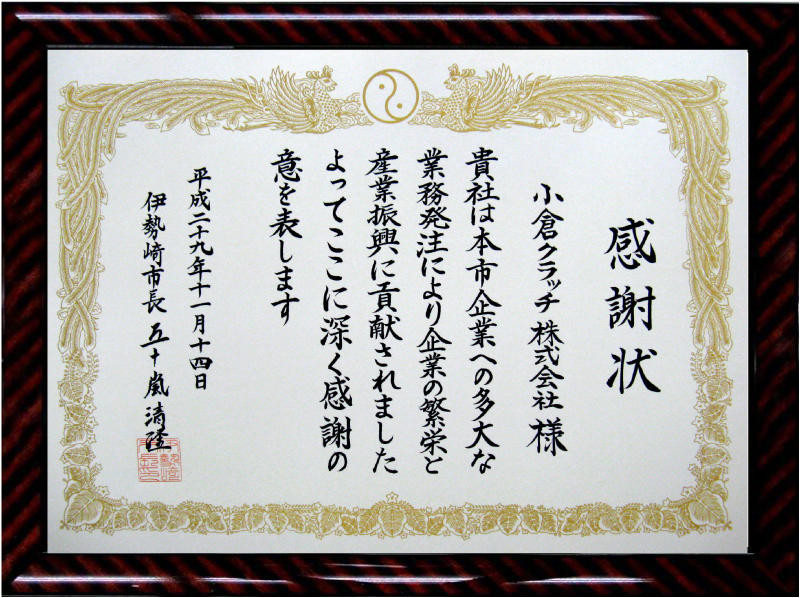 感謝状
小倉クラッチ株式会社 様
貴社は本市企業への多大な
業務発注により企業の繁栄と
産業振興に貢献されました
よってここに深く感謝の
意を表します
平成二十九年十一月十四日
伊勢崎市長 五十嵐清隆